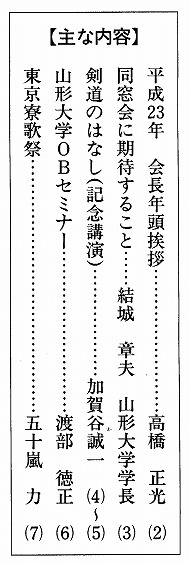 【主な内容】
平成23年　会長年頭挨拶……………高橋　正光　(2)
同窓会に期待すること……結城　章夫　山形大学学長　(3)
剣道のはなし(記念講演)……………加賀谷誠一　(4)～(5)
山形大学OBセミナー……………………渡部　徳正　(6)
東京寮歌祭……………………………五十嵐　力　(7)